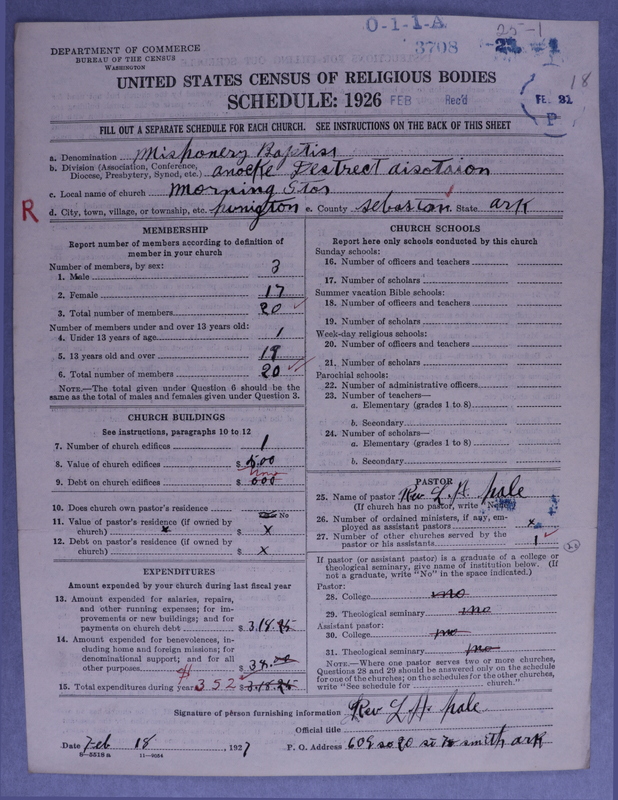 O-1-1-A
25-1
3708
18
DEPARTMENT OF COMMERCE
BUREAU OF THE CENSUS
WASHINGTON
UNITED STATES CENSUS OF RELIGIOUS BODIES
SCHEDULE: 1926 FEB Rec'd
FE 22
P
FILL OUT A SEPARATE SCHEDULE FOR EACH CHURCH. SEE INSTRUCTIONS ON THE BACK OF THIS SHEET
a. Denomination Missonery Baptiss
b. Division (Association, Conference,
Diocese, Presbytery, Synod, etc.) Destrect
c. Local name of church Morning Star
R
d. City, town, village, or township, etc. e. County Sebastan State Ark
MEMBERSHIP
Report number of members according to definition of
member in your church
Number of members, by sex:
1. Male 3
2. Female 17
3. Total number of members 20
Number of members under and over 13 years old:
4. Under 13 years of age 1
5. 13 years old and over 19
6. Total number of members 20
NOTE.—The total given under Question 6 should be the
same as the total of males and females given under Question 3.
CHURCH BUILDINGS
See instructions, paragraphs 10 to 12
7. Number of church edifices 1
8. Value of church edifices $ 500
9. Debt on church edifices $ 000
10. Does church own pastor's residence No
11. Value of pastor's residence (if owned by
church) x $ x
12. Debt on pastor's residence (if owned by
church) $ x
EXPENDITURES
Amount expended by your church during last fiscal year
13. Amount expended for salaries, repairs,
and other running expenses; for im-
provements or new buildings; and for
payments on church debt $ 318.25
14. Amount expended for benevolences, in-
cluding home and foreign missions; for
denominational support; and for all
other purposes $ 34.00
15. Total expenditures during year $ 352 $ 318.25
CHURCH SCHOOLS
Report here only schools conducted by this church
Sunday schools:
16. Number of officers and teachers
17. Number of scholars
Summer vacation Bible schools:
18. Number of officers and teachers
19. Number of scholars
Week-day religious schools:
20. Number of officers and teachers
21. Number of scholars
Parochial schools:
22. Number of administrative officers
23. Number of teachers—
a. Elementary (grades 1 to 8)
b. Secondary
24. Number of scholars—
a. Elementary (grades 1 to 8)
b. Secondary
PASTOR
25. Name of pastor Rev L. H. Hale
(If church has no pastor, write "None")
26. Number of ordained ministers, if any, em-
ployed as assistant pastors x
27. Number of other churches served by the
pastor or his assistants 1
If pastor (or assistant pastor) is a graduate of a college or
theological seminary, give name of institution below. (If
not a graduate, write "No" in the space indicated.)
Pastor:
28. College no
29. Theological seminary no
Assistant pastor:
30. College no
31. Theological seminary no
NOTE.—Where one pastor serves two or more churches,
Questions 28 and 29 should be answered only on the schedule
for one of the churches; on the schedules for the other churches,
write "See schedule for church."
Signature of person furnishing information Rev L H. Hale
Official title
Date Feb 18, 1927 P. O. Address 609 so 20 st Ft smith ark
8-5518 a 11-9054